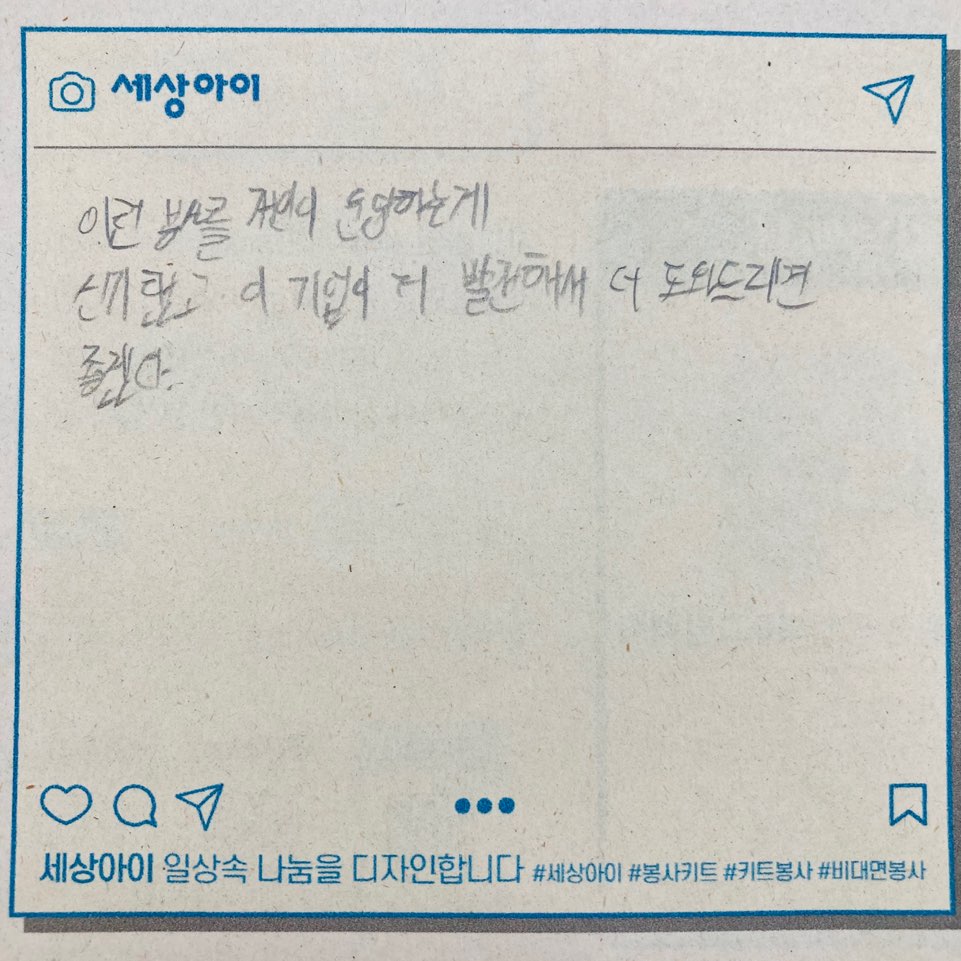 세상아이
이런 봉사를 운영하는게
신기했고 이 기업이 더 발전해서 더 도와드리면
좋겠다.
세상아이 일상속 나눔을 디자인합니다 #세상아이 #봉사키트 #키트봉사 #비대면봉사